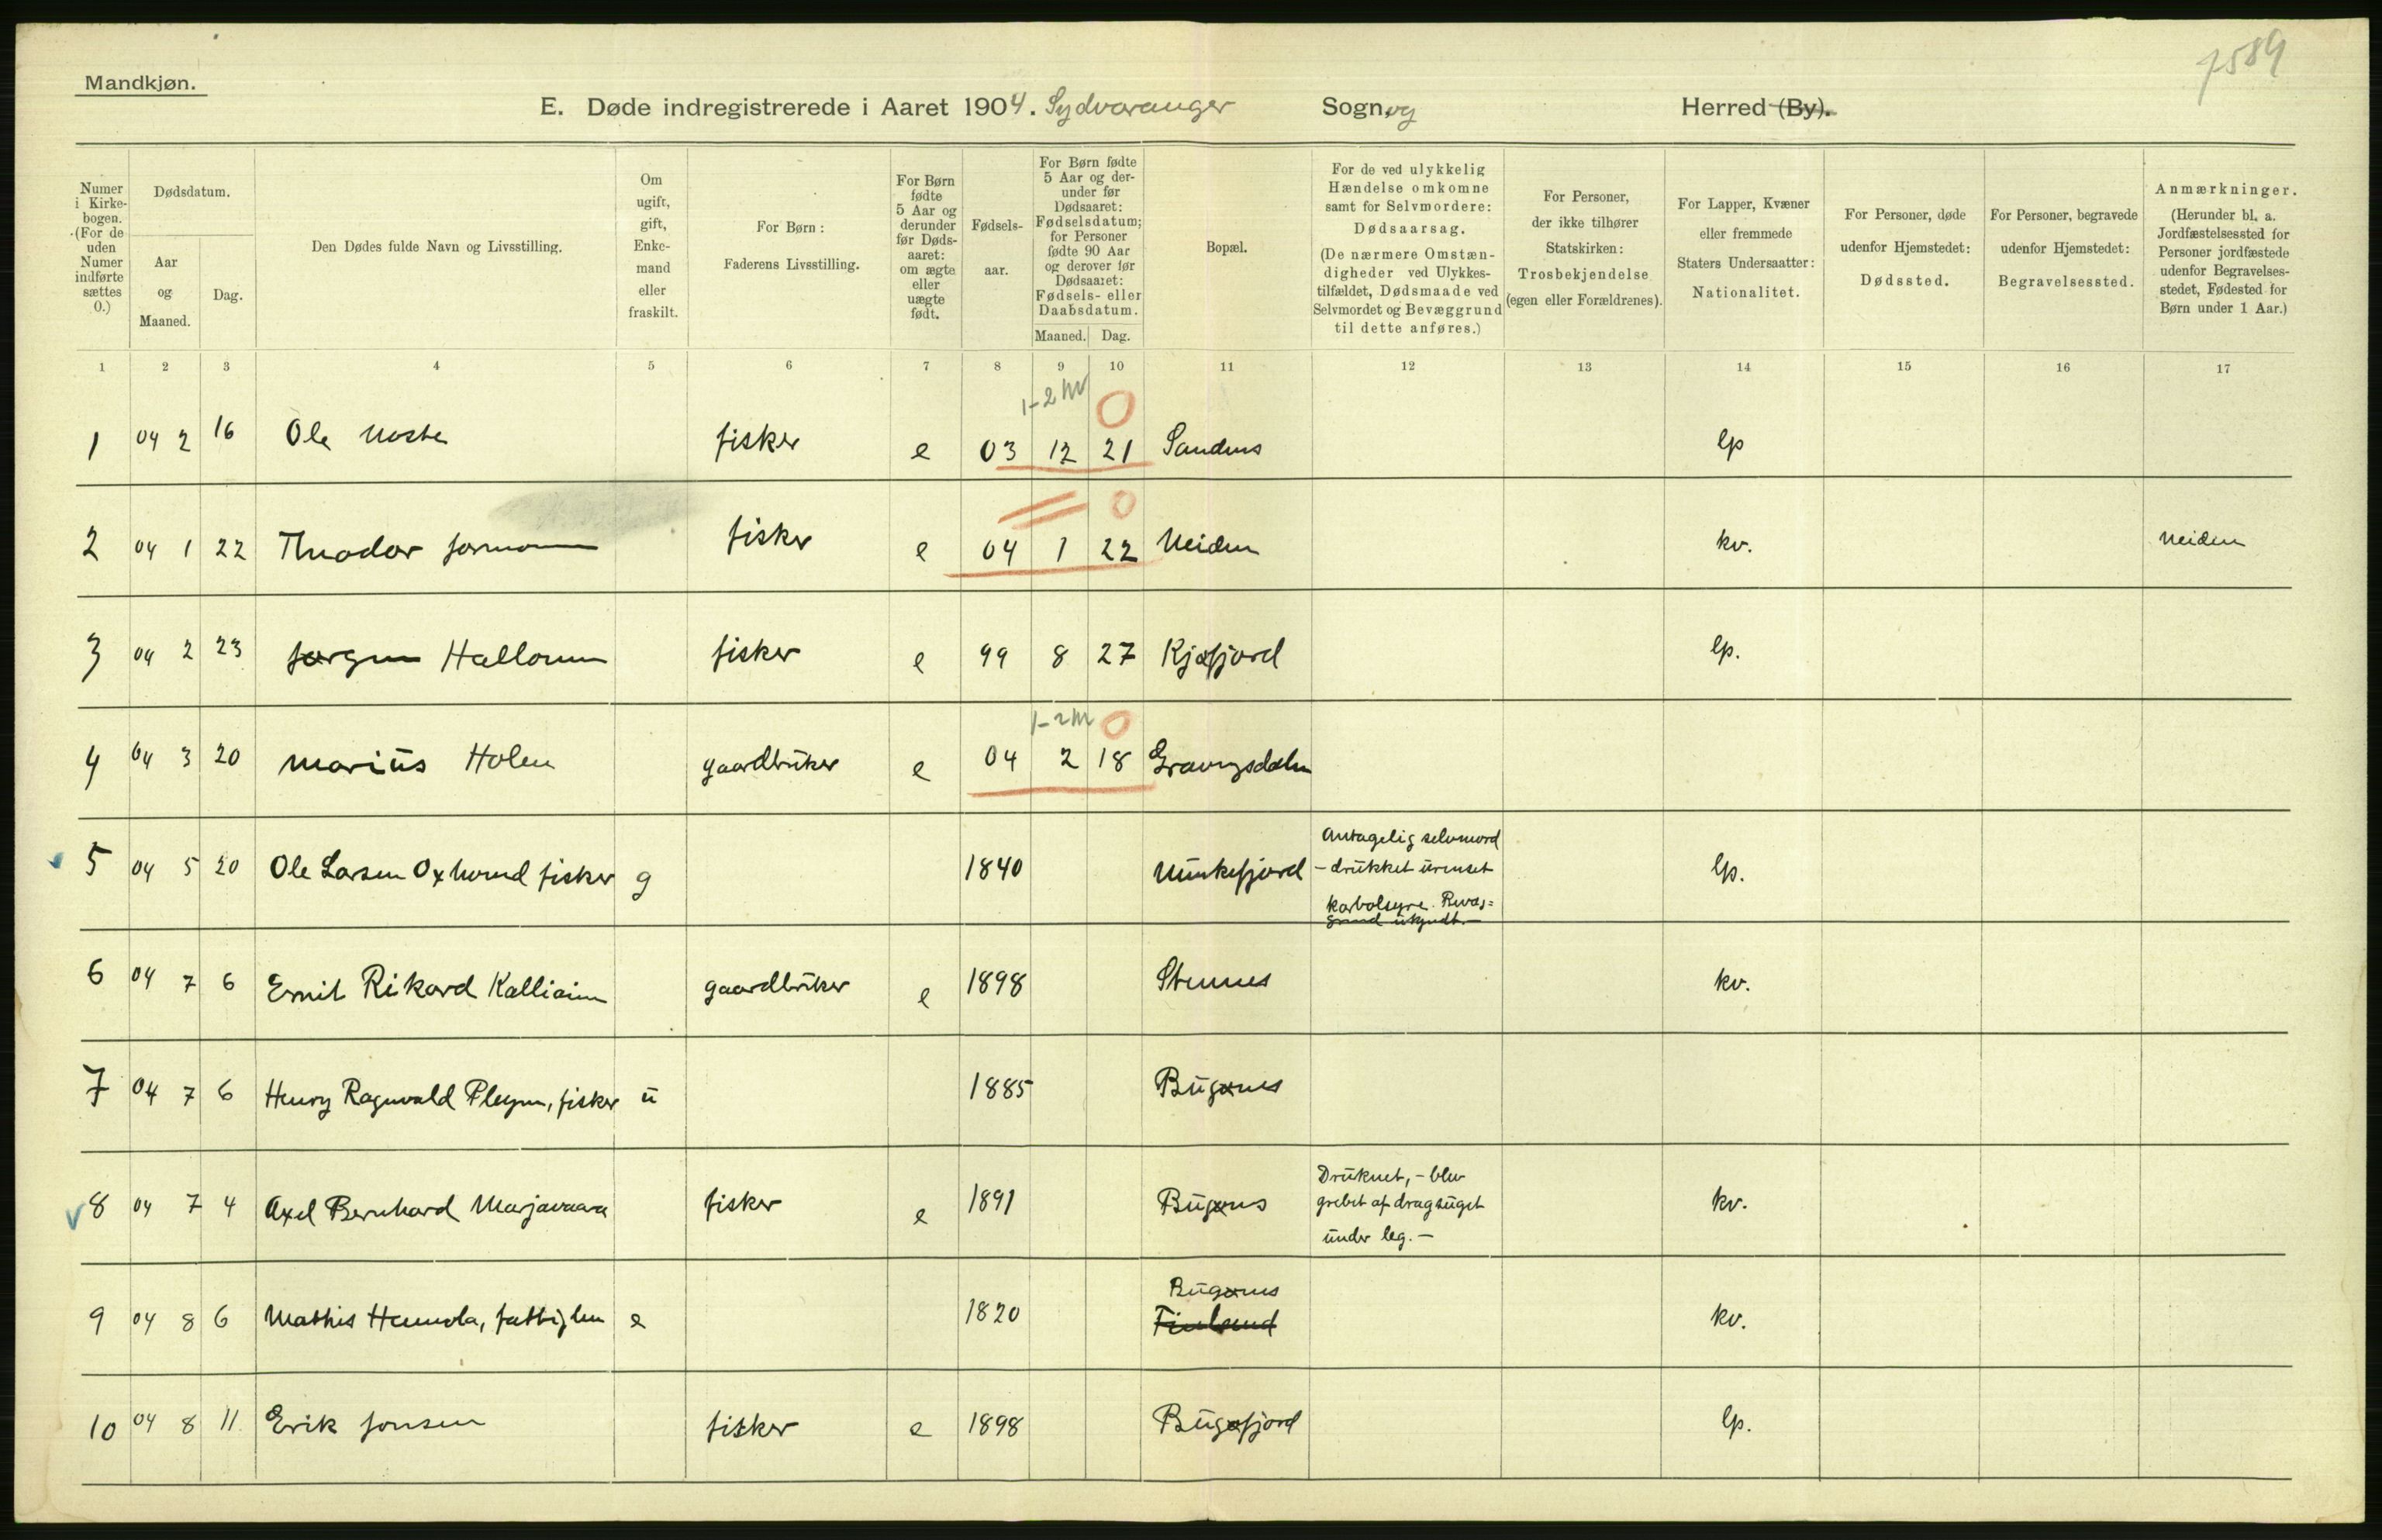 7589
Mandkjøn.
E. Døde indregistrerede i Aaret 1904. Sydvaranger Sogn og Herred (By).
Numer i Kirkebogen. (For de uden Numer indførte sættes 0.)
Dødsdatum.
Aar og Maaned.
Dag.
Den Dødes fulde Navn og Livsstilling.
Om ugift, gift, Enkemand eller fraskilt.
For Børn: Faderens Livsstilling.
For Børn fødte 5 Aar og derunder før Dødsaaret: om ægte eller uægte født.
Fødselsaar.
For Børn fødte 5 Aar og derunder før Dødsaaret: Fødselsdatum; for Personer fødte 90 Aar og derover før Dødsaaret: Fødsels- eller Daabsdatum.
Maaned. Dag.
Bopæl.
For de ved ulykkelig Hændelse omkomne samt for Selvmordere: Dødsaarsag. (De nærmere Omstændigheder ved Ulykkestilfældet, Dødsmaade ved Selvmordet og Bevæggrund til dette anføres.)
For Personer, der ikke tilhører Statskirken: Trosbekjendelse (egen eller Forældrenes).
For Lapper, Kvæner eller fremmede Staters Undersaatter: Nationalitet.
For Personer, døde udenfor Hjemstedet: Dødssted.
For Personer, begravede udenfor Hjemstedet: Begravelsessted.
Anmærkninger. (Herunder bl. a. Jordfæstelsessted for Personer jordfæstede udenfor Begravelsesstedet, Fødested for Børn under 1 Aar.)
1 2 3 4 5 6 7 8 9 10 11 12 13 14 15 16 17
1-2 M 0
1 04 2 16 Ole Noste fisker e 03 12 21 Sandnes lp
0
2 04 1 22 Theodor fisker e 04 1 22 Neiden kv. Neiden
3 04 2 23 Jørgen fisker e 99 8 27 Kjøfjord lp.
1-2 M 0
4 04 3 20 Marius Holen gaardbruker e 04 2 18
5 04 5 20 Ole Larsen fisker g 1840 Munkefjord Antagelig selvmord
- drukket urenset
karbolsyre. Bevæg=
grund ukjendt. - lp.
6 04 7 6 Emil Rikard gaardbruker e 1898 kv.
7 04 7 6 Henry Ragnvald Pleym, fisker u 1885 Bugønes
8 04 7 4 Axel Bernhard Marjavaara fisker e 1891 Bugønes Druknet, - blev
grebet af dragsuget
under leg. - kv.
9 04 8 6 Mathis fattiglem e 1820 Bugønes kv.
10 04 8 11 Erik Jonsen fisker e 1898 Bugøfjord lp.